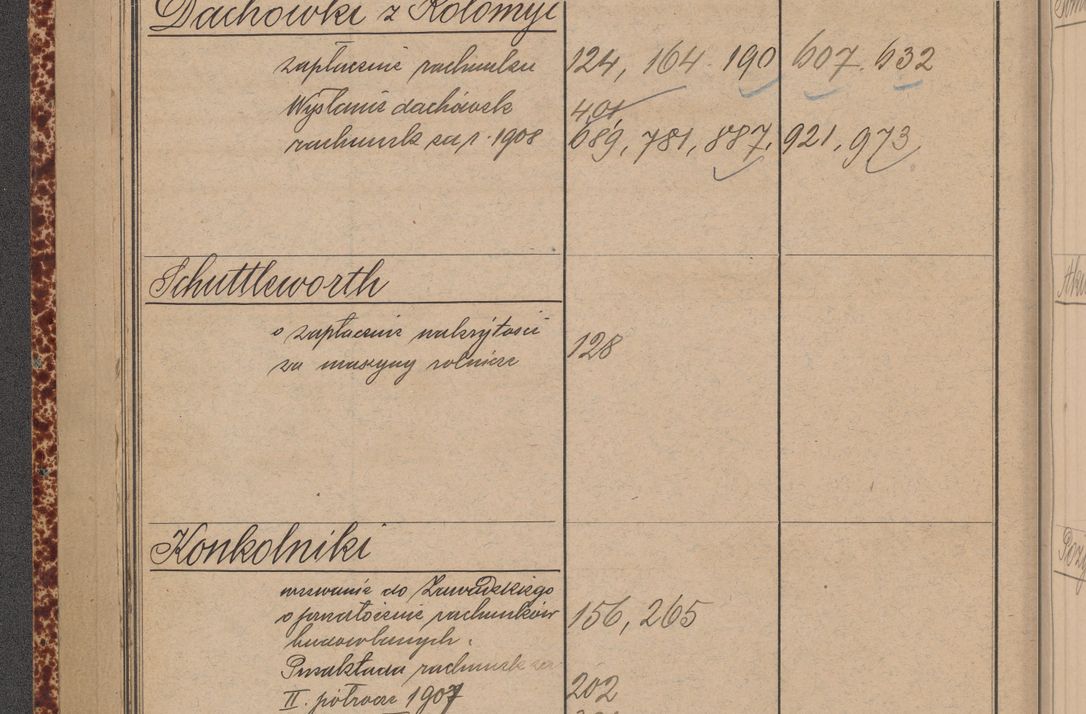 Dachówki z Kołomyi
zapłacenie rachunku 124, 164. 190 607. 632
Wysłanie dachówek 401
rachunek za r. 1908 689, 781, 887, 921, 973
Schuttleworth
o zapłacenie należytości
za maszyny rolnicze 128
Konkolniki
wezwanie do Zawadzkiego
o przedłożenie rachunków 156, 265
budowlanych.
Przedkłada rachunek za
II. półrocze 1907 202